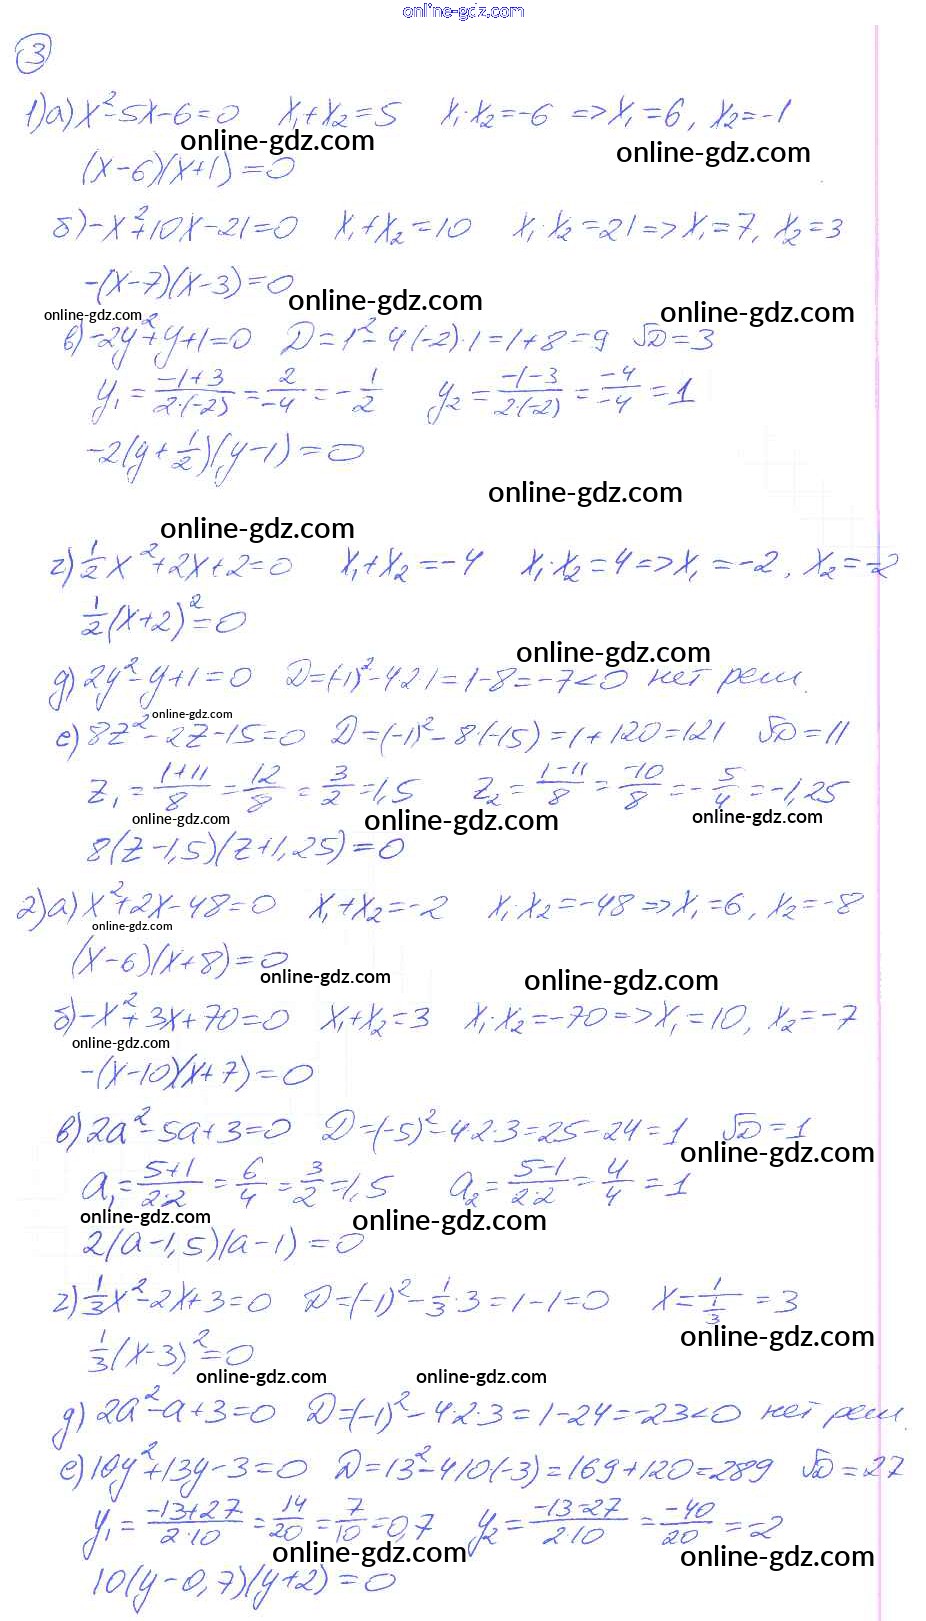 online-gdz.com
3
1) а) x²-5x-6=0 x₁+x₂=5 x₁·x₂=-6 => x₁=6, x₂=-1
online-gdz.com online-gdz.com
(x-6)(x+1)=0
б) -x²+10x-21=0 x₁+x₂=10 x₁·x₂=21 => x₁=7, x₂=3
-(x-7)(x-3)=0
online-gdz.com online-gdz.com online-gdz.com
в) -2y²+y+1=0 D=1²-4(-2)·1=1+8=9 √D=3
y₁=(-1+3)/(2·(-2))=2/-4=-1/2 y₂=(-1-3)/(2(-2))=-4/-4=1
-2(y+1/2)(y-1)=0
online-gdz.com
online-gdz.com
г) 1/2x²+2x+2=0 x₁+x₂=-4 x₁·x₂=4 => x₁=-2, x₂=-2
1/2(x+2)²=0
online-gdz.com
д) 2y²-y+1=0 D=(-1)²-4·2·1=1-8=-7<0 нет реш.
online-gdz.com
е) 8z²-2z-15=0 D=(-1)²-8·(-15)=1+120=121 √D=11
z₁=(1+11)/8=12/8=3/2=1,5 z₂=(1-11)/8=-10/8=-5/4=-1,25
online-gdz.com online-gdz.com online-gdz.com
8(z-1,5)(z+1,25)=0
2) а) x²+2x-48=0 x₁+x₂=-2 x₁·x₂=-48 => x₁=6, x₂=-8
online-gdz.com
(x-6)(x+8)=0
online-gdz.com online-gdz.com
б) -x²+3x+70=0 x₁+x₂=3 x₁·x₂=-70 => x₁=10, x₂=-7
online-gdz.com
-(x-10)(x+7)=0
в) 2a²-5a+3=0 D=(-5)²-4·2·3=25-24=1 √D=1
online-gdz.com
a₁=(5+1)/(2·2)=6/4=3/2=1,5 a₂=(5-1)/(2·2)=4/4=1
online-gdz.com online-gdz.com
2(a-1,5)(a-1)=0
г) 1/3x²-2x+3=0 D=(-1)²-1/3·3=1-1=0 x=1/(1/3)=3
online-gdz.com
1/3(x-3)²=0
online-gdz.com online-gdz.com
д) 2a²-a+3=0 D=(-1)²-4·2·3=1-24=-23<0 нет реш.
е) 10y²+13y-3=0 D=13²-4·10(-3)=169+120=289 √D=27
y₁=(-13+27)/(2·10)=14/20=7/10=0,7 y₂=(-13-27)/(2·10)=-40/20=-2
online-gdz.com online-gdz.com
10(y-0,7)(y+2)=0